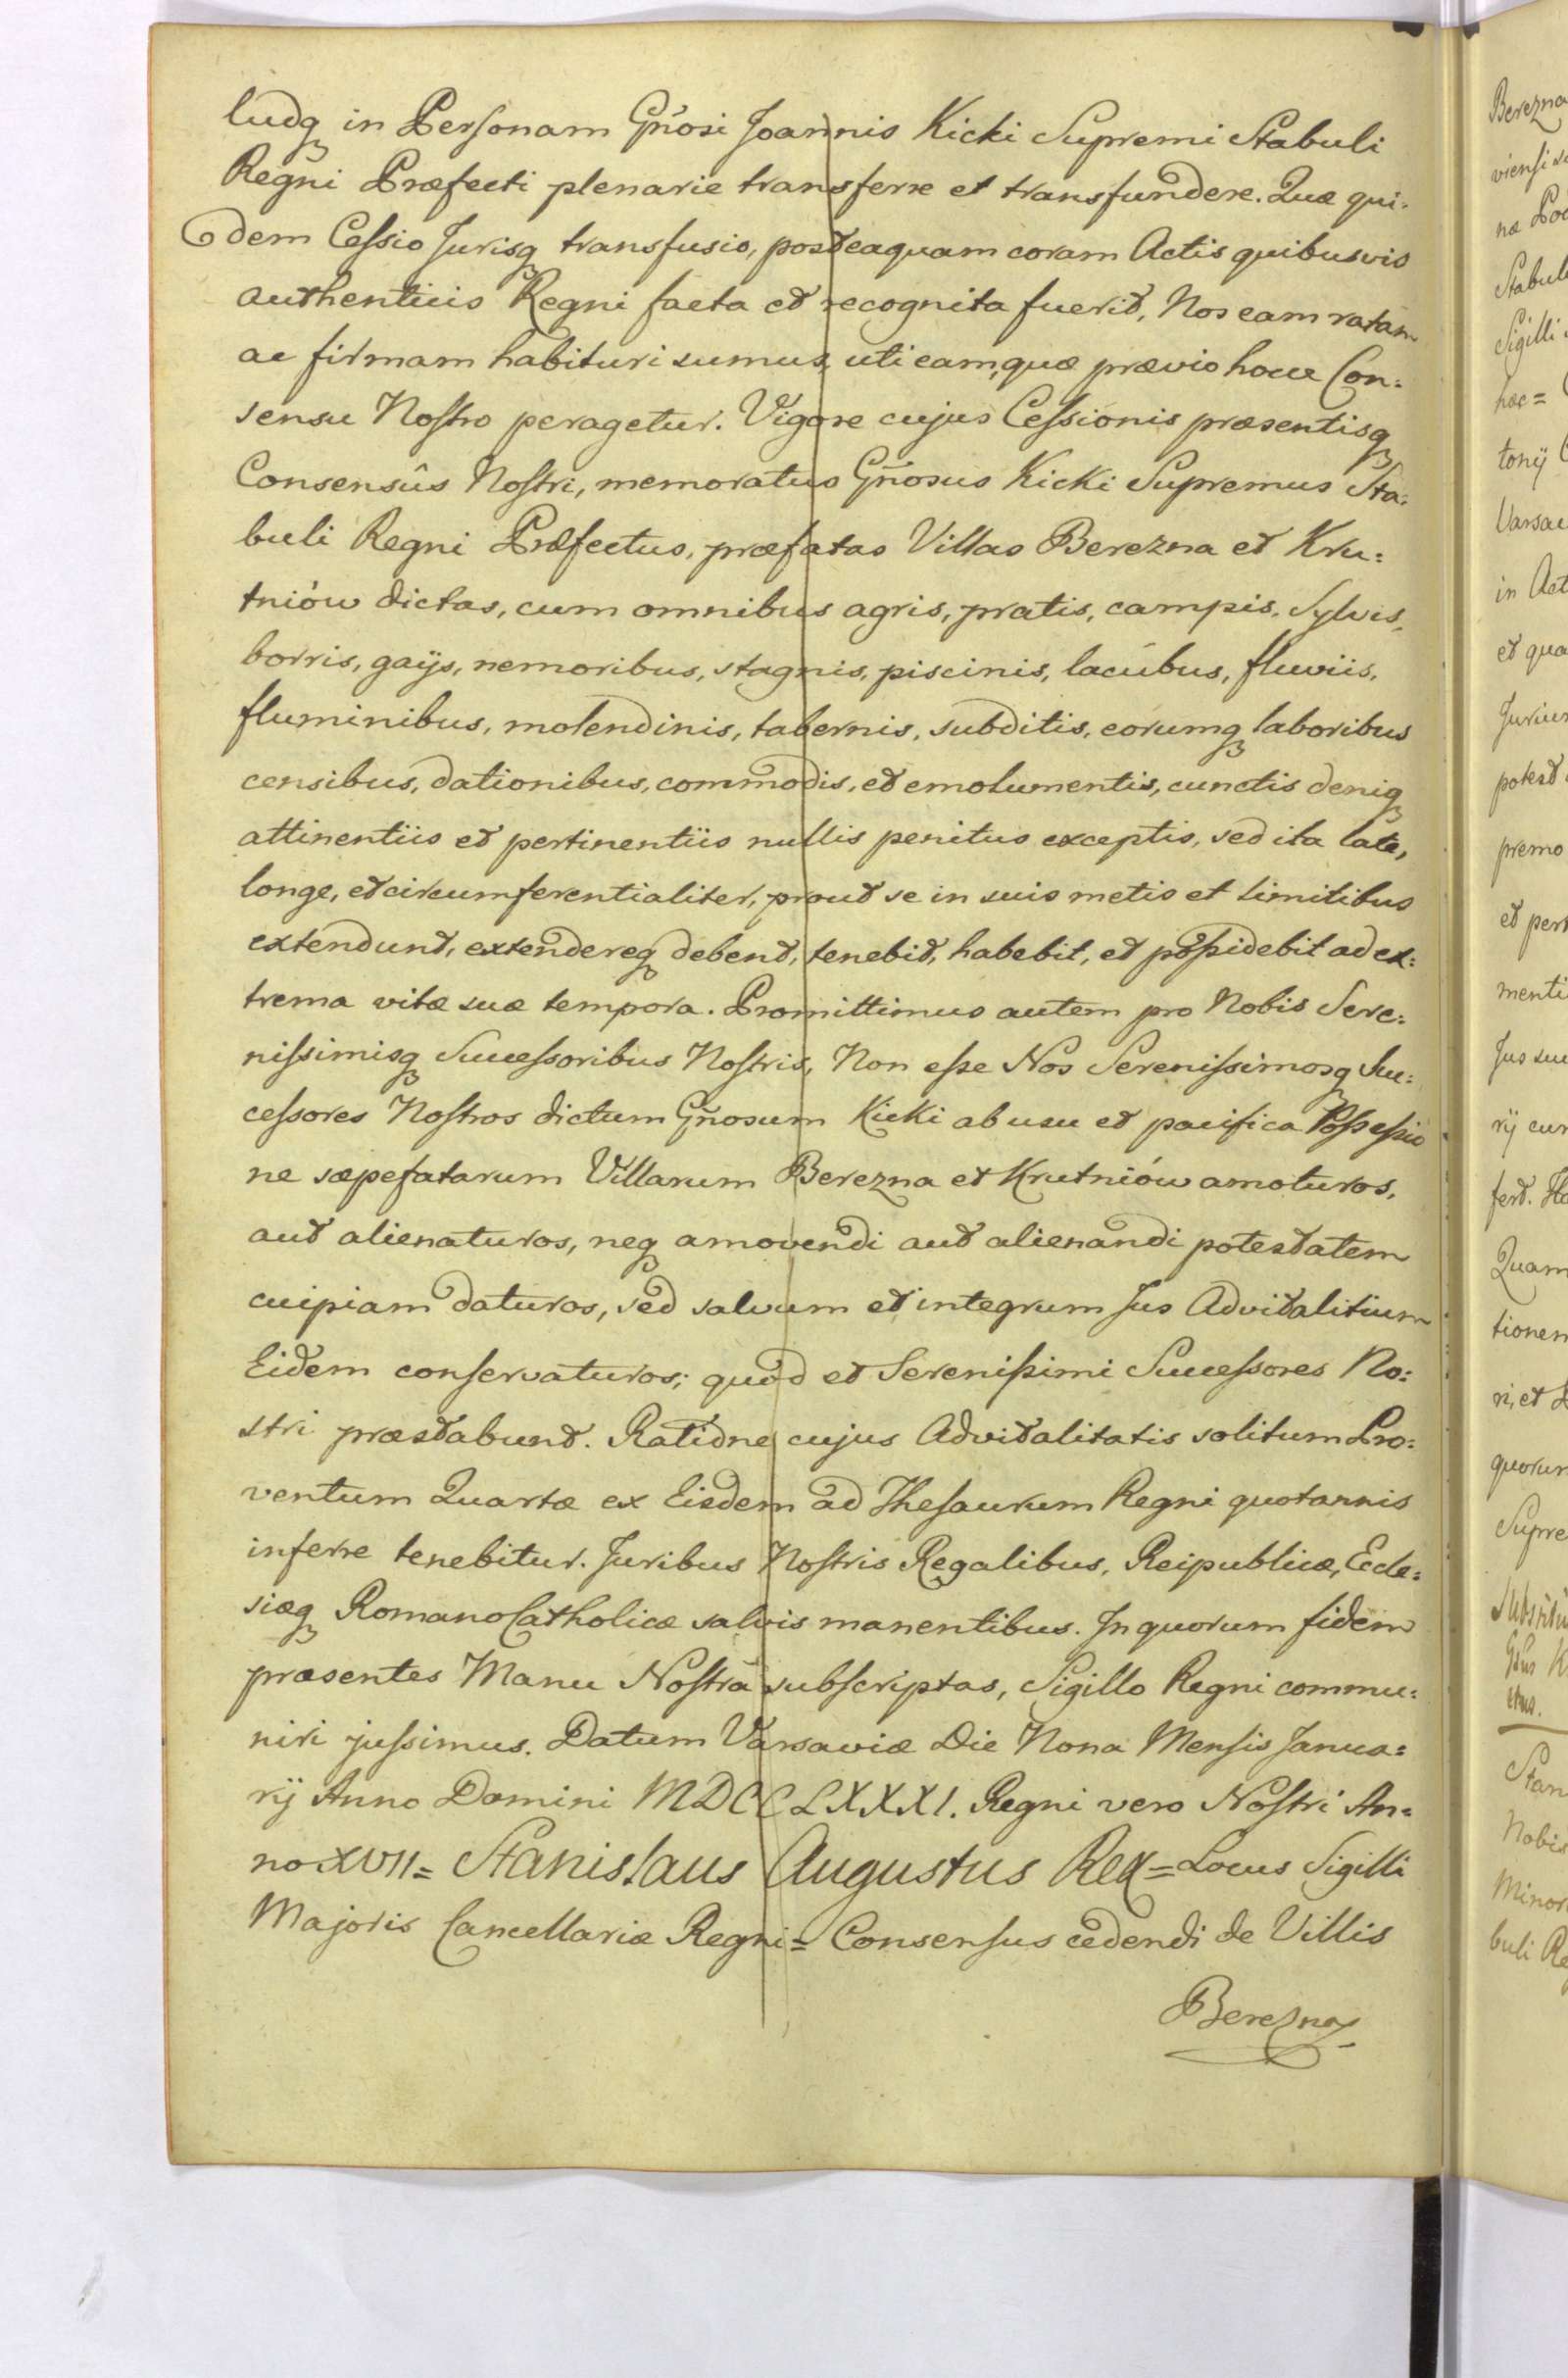 ludq in Personam Gn̄osi Joannis Kicki Supremi Stabuli
Regni Præfecti plenarie transferre et transfundere. Quæ qui-
dem Cessio Jurisq transfusio, posteaquam coram Actis quibusvis
authenticis Regni facta et recognita fuerit, Nos eam ratam
ac firmam habituri sumus, uti eam, quæ prævio hocce Con=
sensu Nostro peragetur. Vigore cujus Cessionis præsentisq
Consensûs Nostri, memoratus Gn̄osus Kicki Supremus Sta=
buli Regni Præfectus, præfatas Villas Berezna et Kru=
tniów dictas, cum omnibus agris, pratis, campis, Sylvis,
borris, gaijs, nemoribus, stagnis, piscinis, lacubus, fluviis,
fluminibus, molendinis, tabernis, subditis, eorumq laboribus
censibus, dationibus, commodis, et emolumentis, cunctis deniq
attinentiis et pertinentiis nullis penitus exceptis, sed ita late,
longe, et circumferentialiter, prout se in suis metis et limitibus
extendunt, extendereq debent, tenebit, habebit, et possidebit ad ex=
trema vitæ suæ tempora. Promittimus autem pro Nobis Sere=
nissimisq Successoribus Nostris, Non esse Nos Serenissimosq Suc=
cessores Nostros dictum Gn̄osum Kicki ab usu et pacifica Possessio
ne sæpefatarum Villarum Berezna et Krutniów amoturos,
aut alienaturos, neq amovendi aut alienandi potestatem
cuipiam daturos, sed salvum et integrum Jus Advitalitium
Eidem conservaturos; quòd et Serenissimi Successores No=
stri præstabunt. Ratione cujus Advitalitatis solitum Pro=
ventum Quartæ ex Eisdem ad Thesaurum Regni quotannis
inferre tenebitur. Juribus Nostris Regalibus, Reipublicæ, Eccle=
siæq Romano Catholicæ salvis manentibus. In quorum fidem
præsentes Manu Nostrâ subscriptas, Sigillo Regni commu=
niri jussimus. Datum Varsaviæ Die Nona Mensis Janua=
rij Anno Domini MDCCLXXXI. Regni vero Nostri An=
no XVII= Stanislaus Augustus Rex= Locus Sigilli
Majoris Cancellariæ Regni= Consensus cedendi de Villis
Berezna
Berezna
viensi
Stabul
Sigilli
hæc=
tonij
Varsav
in Act
et qua
Jurium
potest
premo
et pert
menti
Jus su
rij cum
fert.
Quam
tionem
ri, et
quorum
Supre
Stan
Nobis
Minor
buli Re